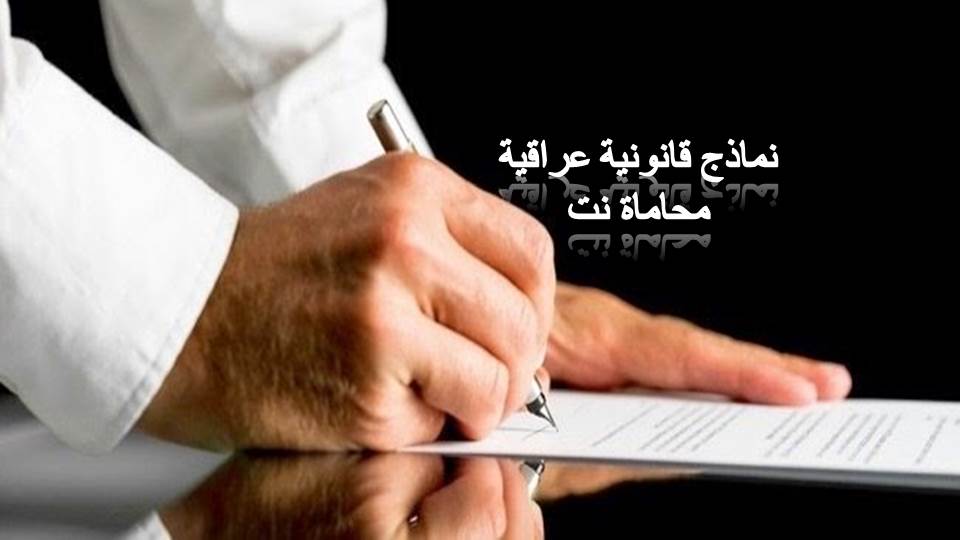 نماذج قانونية عراقية
محاماة نت